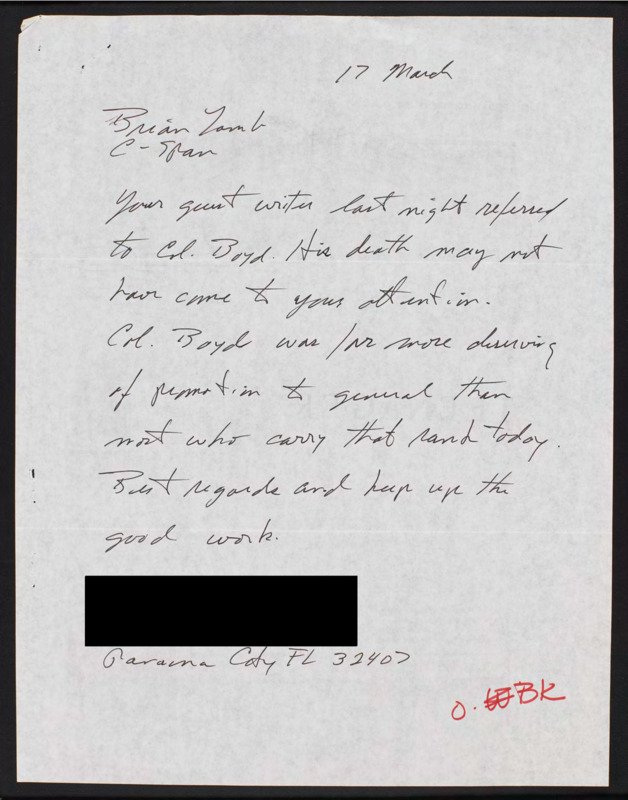 17 March
Brian Lamb
C-Span
Your guest writer last night referred
to Col. Boyd. His death may not
have come to your attention.
Col. Boyd was far more deserving
of promotion to general than
most who carry that rank today.
Best regards and keep up the
good work.
Panama City FL 32407
O. BK